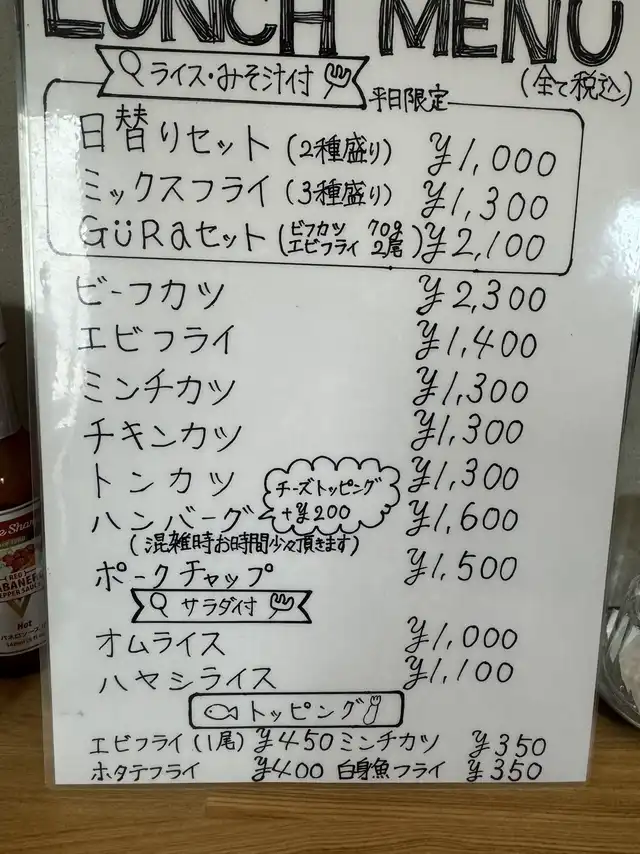 LUNCH MENU
(全て税込)
ライス・みそ汁付
平日限定
日替りセット (2種盛り) ¥1,000
ミックスフライ (3種盛り) ¥1,300
GüRaセット (ビフカツ 70g エビフライ 2尾) ¥2,100
ビーフカツ ¥2,300
エビフライ ¥1,400
ミンチカツ ¥1,300
チキンカツ ¥1,300
トンカツ ¥1,300
チーズトッピング
+¥200
ハンバーグ ¥1,600
(混雑時お時間少々頂きます)
ポークチャップ ¥1,500
サラダ付
オムライス ¥1,000
ハヤシライス ¥1,100
トッピング
エビフライ (1尾) ¥450 ミンチカツ ¥350
ホタテフライ ¥400 白身魚フライ ¥350
RED
Hot